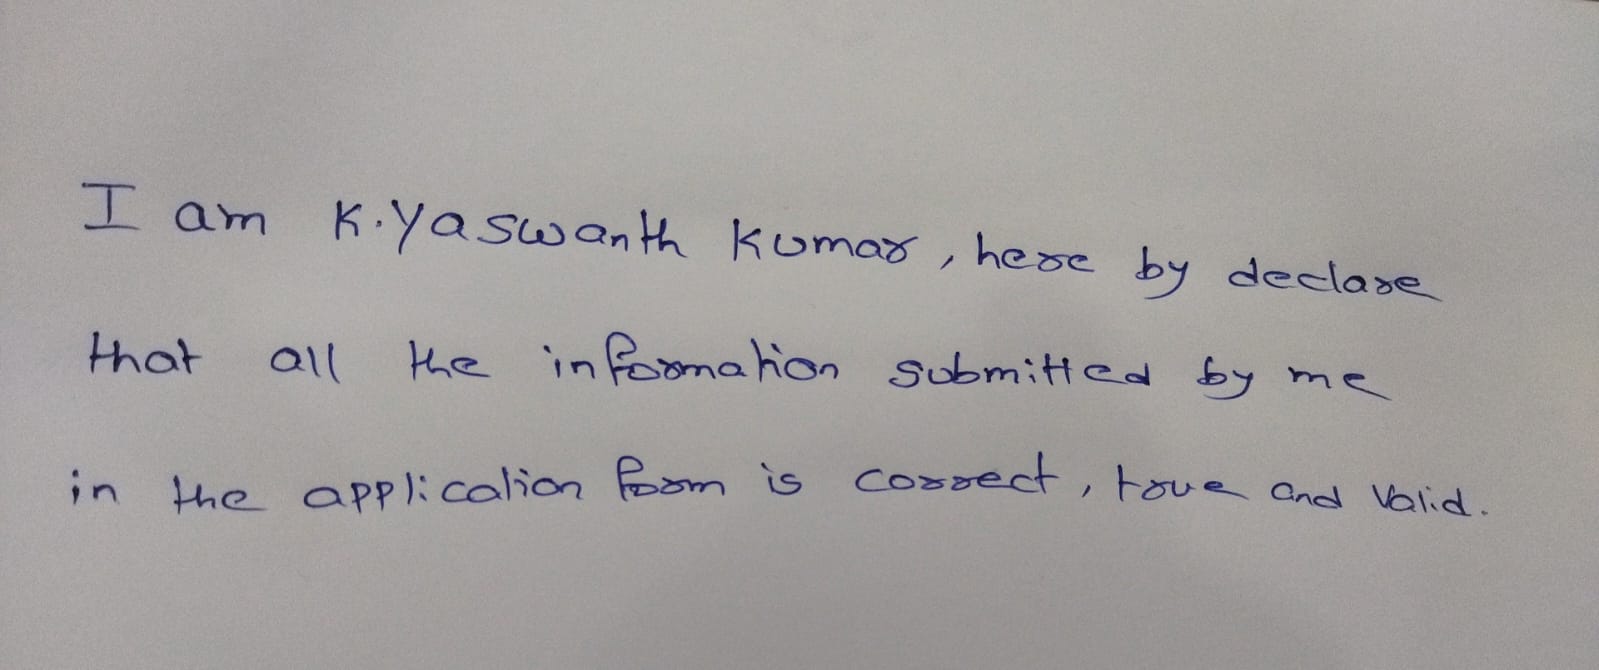 I am K.Yaswanth Kumar, here by declare
that all the information submitted by me
in the application form is correct, true and Valid.